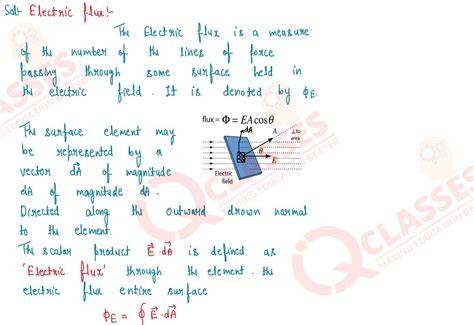 Sol:- Electric flux:-
The Electric flux is a measure
of the number of the lines of force
passing through some surface held in
the electric field. It is denoted by ϕE.
The surface element may
be represented by a
vector dA⃗ of magnitude
dA of magnitude dA.
Directed along the outward drown normal
to the element.
flux = Φ = EA cos θ
dA
A
⊥ to
area
θ
E
Electric
field
The scalar product E⃗·dA⃗ is defined as
'Electric flux' through the element. the
electric flux entire surface
ϕE = ∮ E⃗·dA⃗
CLASSES
MAKING EDUCATION BETTER
IQ CLASSES
MAKING EDUCATION BETTER